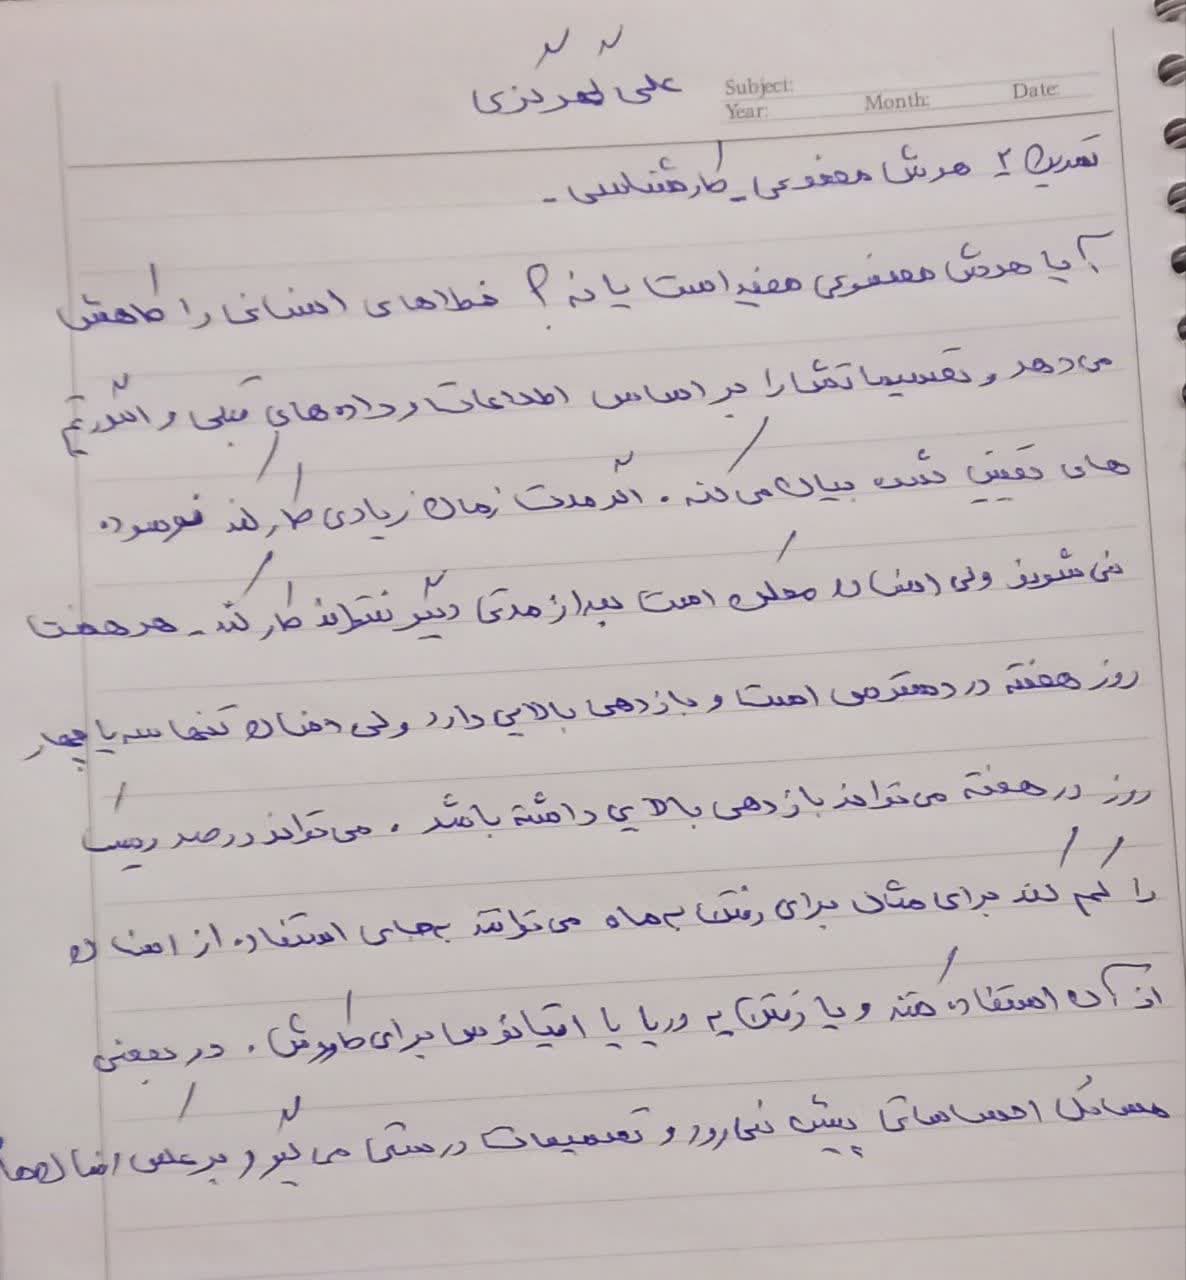 علی لهر گزی
Subject:
Year:
Month:
Date:
تمرین ۲ هوش مصنوعی_کارشناسی -
آیا هوش مصنوعی مفید است یا نه؟ خطاهای انسانی را کاهش
می دهد و تصمیماتش را بر اساس اطلاعات و داده های قبلی و الگوریتم
های تعیین شده بیان می کند. اگر مدت زمان زیادی کار کند فرسوده
نمی شوند ولی انسان ممکن است بعد از مدتی دیگر نتواند کار کند - هر هفت
روز هفته در دسترس است و بازدهی بالایی دارد ولی انسان تنها سه یا چهار
روز در هفته می تواند بازدهی بالایی داشته باشد. می تواند درصد ریسک
را کم کند برای مثال برای رفتن به ماه می توانند به جای استفاده از انسان
از آن استفاده کنند و یا رفتن به دریا یا اقیانوس برای کاوش. در بعضی
مسائل احساساتی پیش نمی رود و تصمیمات درستی می گیرد و برعکس انسان ها